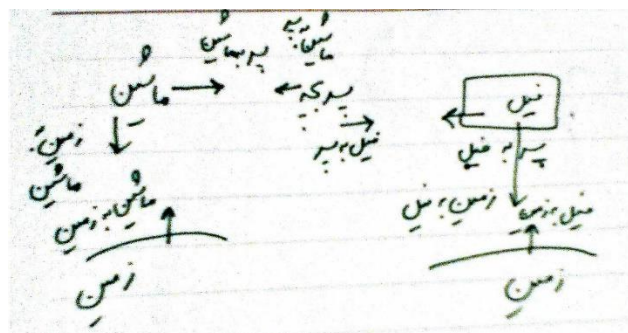 ماشین به پسر
پسر به ماشین
ماشین
پسر بچه
فیل
زمین به
ماشین
ماشین به زمین
فیل به پسر
پسر به فیل
زمین به فیل
فیل به زمین
زمین
زمین